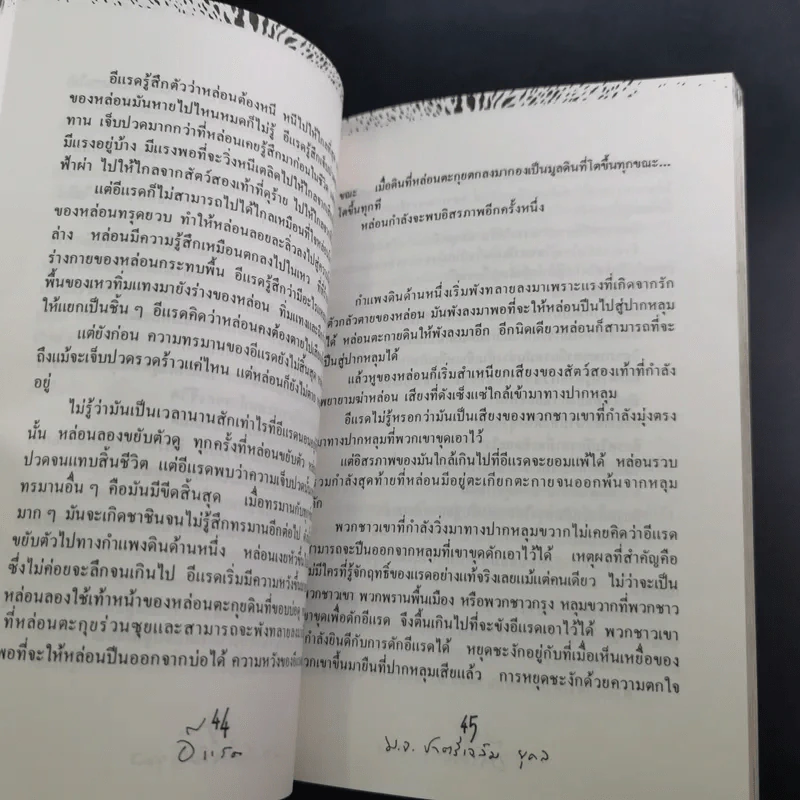 อีแรดรู้สึกตัวว่าหล่อนต้องหนี หนีไปให้ไกลที่
ของหล่อนมันหายไปไหนหมดก็ไม่รู้ อีแรดรู้สึก
ทาน เจ็บปวดมากกว่าที่หล่อนเคยรู้สึกมาก่อนในชีวิต
มีแรงอยู่บ้าง มีแรงพอที่จะวิ่งหนีเตลิดไปให้ไกล
ฟ้าผ่า ไปให้ไกลจากสัตว์สองเท้าที่ดุร้าย ไปให้ไกล
แต่อีแรดก็ไม่สามารถไปได้ไกลเหมือนที่ใจหล่อน
ของหล่อนทรุดยวบ ทำให้หล่อนลอยละลิ่วลงไปสู่
ล่าง หล่อนมีความรู้สึกเหมือนตกลงไปในเหว
ร่างกายของหล่อนกระทบพื้น อีแรดรู้สึกว่ามีอะไร
พื้นของเหวทิ่มแทงมายังร่างของหล่อน ทิ่มแทงและ
ให้แยกเป็นชิ้น ๆ อีแรดคิดว่าหล่อนคงต้องตายไป
แต่ยังก่อน ความทรมานของอีแรดยังไม่สิ้นสุด
ถึงแม้จะเจ็บปวดรวดร้าวแค่ไหน แต่หล่อนก็ยังไม่
อยู่
ไม่รู้ว่ามันเป็นเวลานานสักเท่าไรที่อีแรดนอน
นั้น หล่อนลองขยับตัวดู ทุกครั้งที่หล่อนขยับตัว
ปวดจนแทบสิ้นชีวิต แต่อีแรดพบว่าความเจ็บปวด
ทรมานอื่น ๆ คือมันมีขีดสิ้นสุด เมื่อทรมาน
มาก ๆ มันจะเกิดชาชินจนไม่รู้สึกทรมานอีกต่อไป
ขยับตัวไปทางกำแพงดินด้านหนึ่ง หล่อนเงยหัวขึ้น
ซึ่งไม่ค่อยจะลึกจนเกินไป อีแรดเริ่มมีความหวังขึ้น
หล่อนลองใช้เท้าหน้าของหล่อนตะกุยดินที่ขอบบ่อ
ที่หล่อนตะกุยร่วนซุยและสามารถจะพังทลายลง
พอที่จะให้หล่อนปีนออกจากบ่อได้ ความหวังของ
44
อีแรด
ขณะ เมื่อดินที่หล่อนตะกุยตกลงมากองเป็นมูลดินที่โตขึ้นทุกขณะ...
โตขึ้นทุกที
หล่อนกำลังจะพบอิสรภาพอีกครั้งหนึ่ง
กำแพงดินด้านหนึ่งเริ่มพังทลายลงมาเพราะแรงที่เกิดจากรัก
ตัวกลัวตายของหล่อน มันพังลงมาพอที่จะให้หล่อนปีนไปสู่ปากหลุม
ได้ หล่อนตะกายดินให้พังลงมาอีก อีกนิดเดียวหล่อนก็สามารถที่จะ
ปีนสู่ปากหลุมได้
แล้วหูของหล่อนก็เริ่มสำเหนียกเสียงของสัตว์สองเท้าที่กำลัง
พยายามฆ่าหล่อน เสียงที่ดังเซ็งแซ่ใกล้เข้ามาทางปากหลุม
อีแรดไม่รู้หรอกว่ามันเป็นเสียงของพวกชาวเขาที่กำลังมุ่งตรง
มาทางปากหลุมที่พวกเขาขุดเอาไว้
แต่อิสรภาพของมันใกล้เกินไปที่อีแรดจะยอมแพ้ได้ หล่อนรวบ
รวมกำลังสุดท้ายที่หล่อนมีอยู่ตะเกียกตะกายจนออกพ้นจากหลุม
พวกชาวเขาที่กำลังวิ่งมาทางปากหลุมขวากไม่เคยคิดว่าอีแรด
สามารถจะปีนออกจากหลุมที่เขาขุดดักเอาไว้ได้ เหตุผลที่สำคัญคือ
ไม่มีใครที่รู้จักฤทธิ์ของแรดอย่างแท้จริงเลยแม้แต่คนเดียว ไม่ว่าจะเป็น
พวกชาวเขา พวกพรานพื้นเมือง หรือพวกชาวกรุง หลุมขวากที่พวกชาว
เขาขุดเพื่อดักอีแรด จึงตื้นเกินไปที่จะขังอีแรดเอาไว้ได้ พวกชาวเขา
กำลังยินดีกับการดักอีแรดได้ หยุดชะงักอยู่กับที่เมื่อเห็นเหยื่อของ
พวกเขาขึ้นมายืนที่ปากหลุมเสียแล้ว การหยุดชะงักด้วยความตกใจ
45
ม.จ. ชาตรีเฉลิม ยุคล